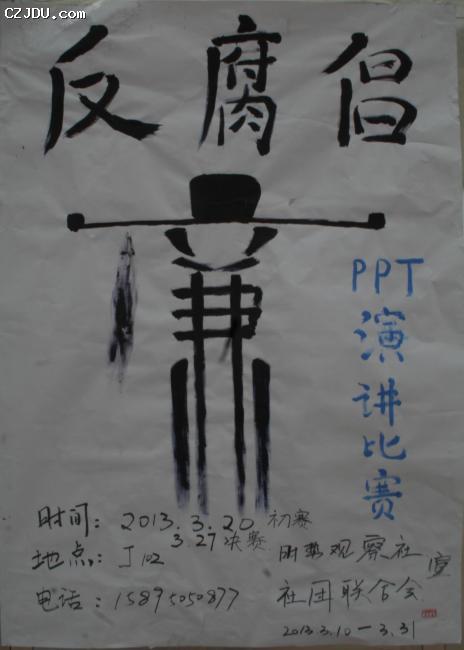 CZJDU.COM
反腐倡
廉
PPT演讲比赛
时间：2013.3.20初赛
3.27决赛
地点：J102
电话：15895050877
时势观察社
社团联合会
宣
2013.3.10—3.31